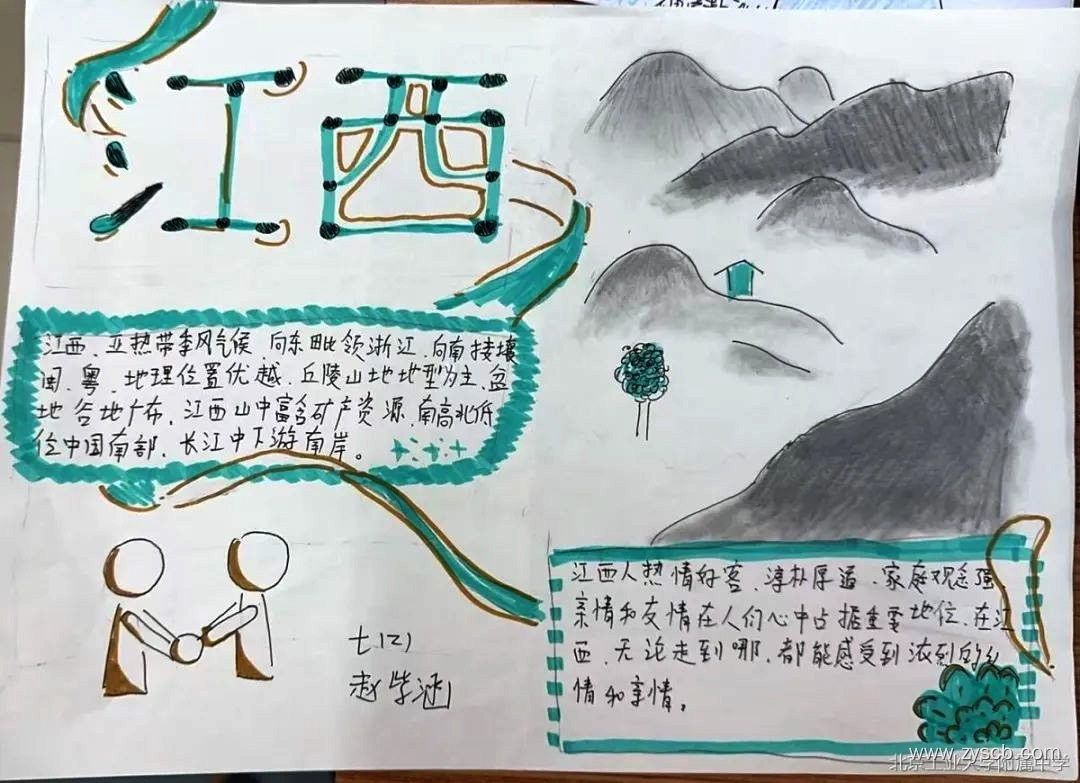 江西
江西、亚热带季风气候、向东毗领浙江、向南接壤
闽、粤、地理位置优越、丘陵山地地型为主、盆
地谷地广布，江西山中富含矿产资源，南高北低
位中国南部、长江中下游南岸。
江西人热情好客、淳朴厚道、家庭观念强
亲情和友情在人们心中占据重要地位、在江
西、无论走到哪、都能感受到浓烈的
情和亲情。
七(2)
赵紫涵
www.zyscb.com
北京工业大学附属中学